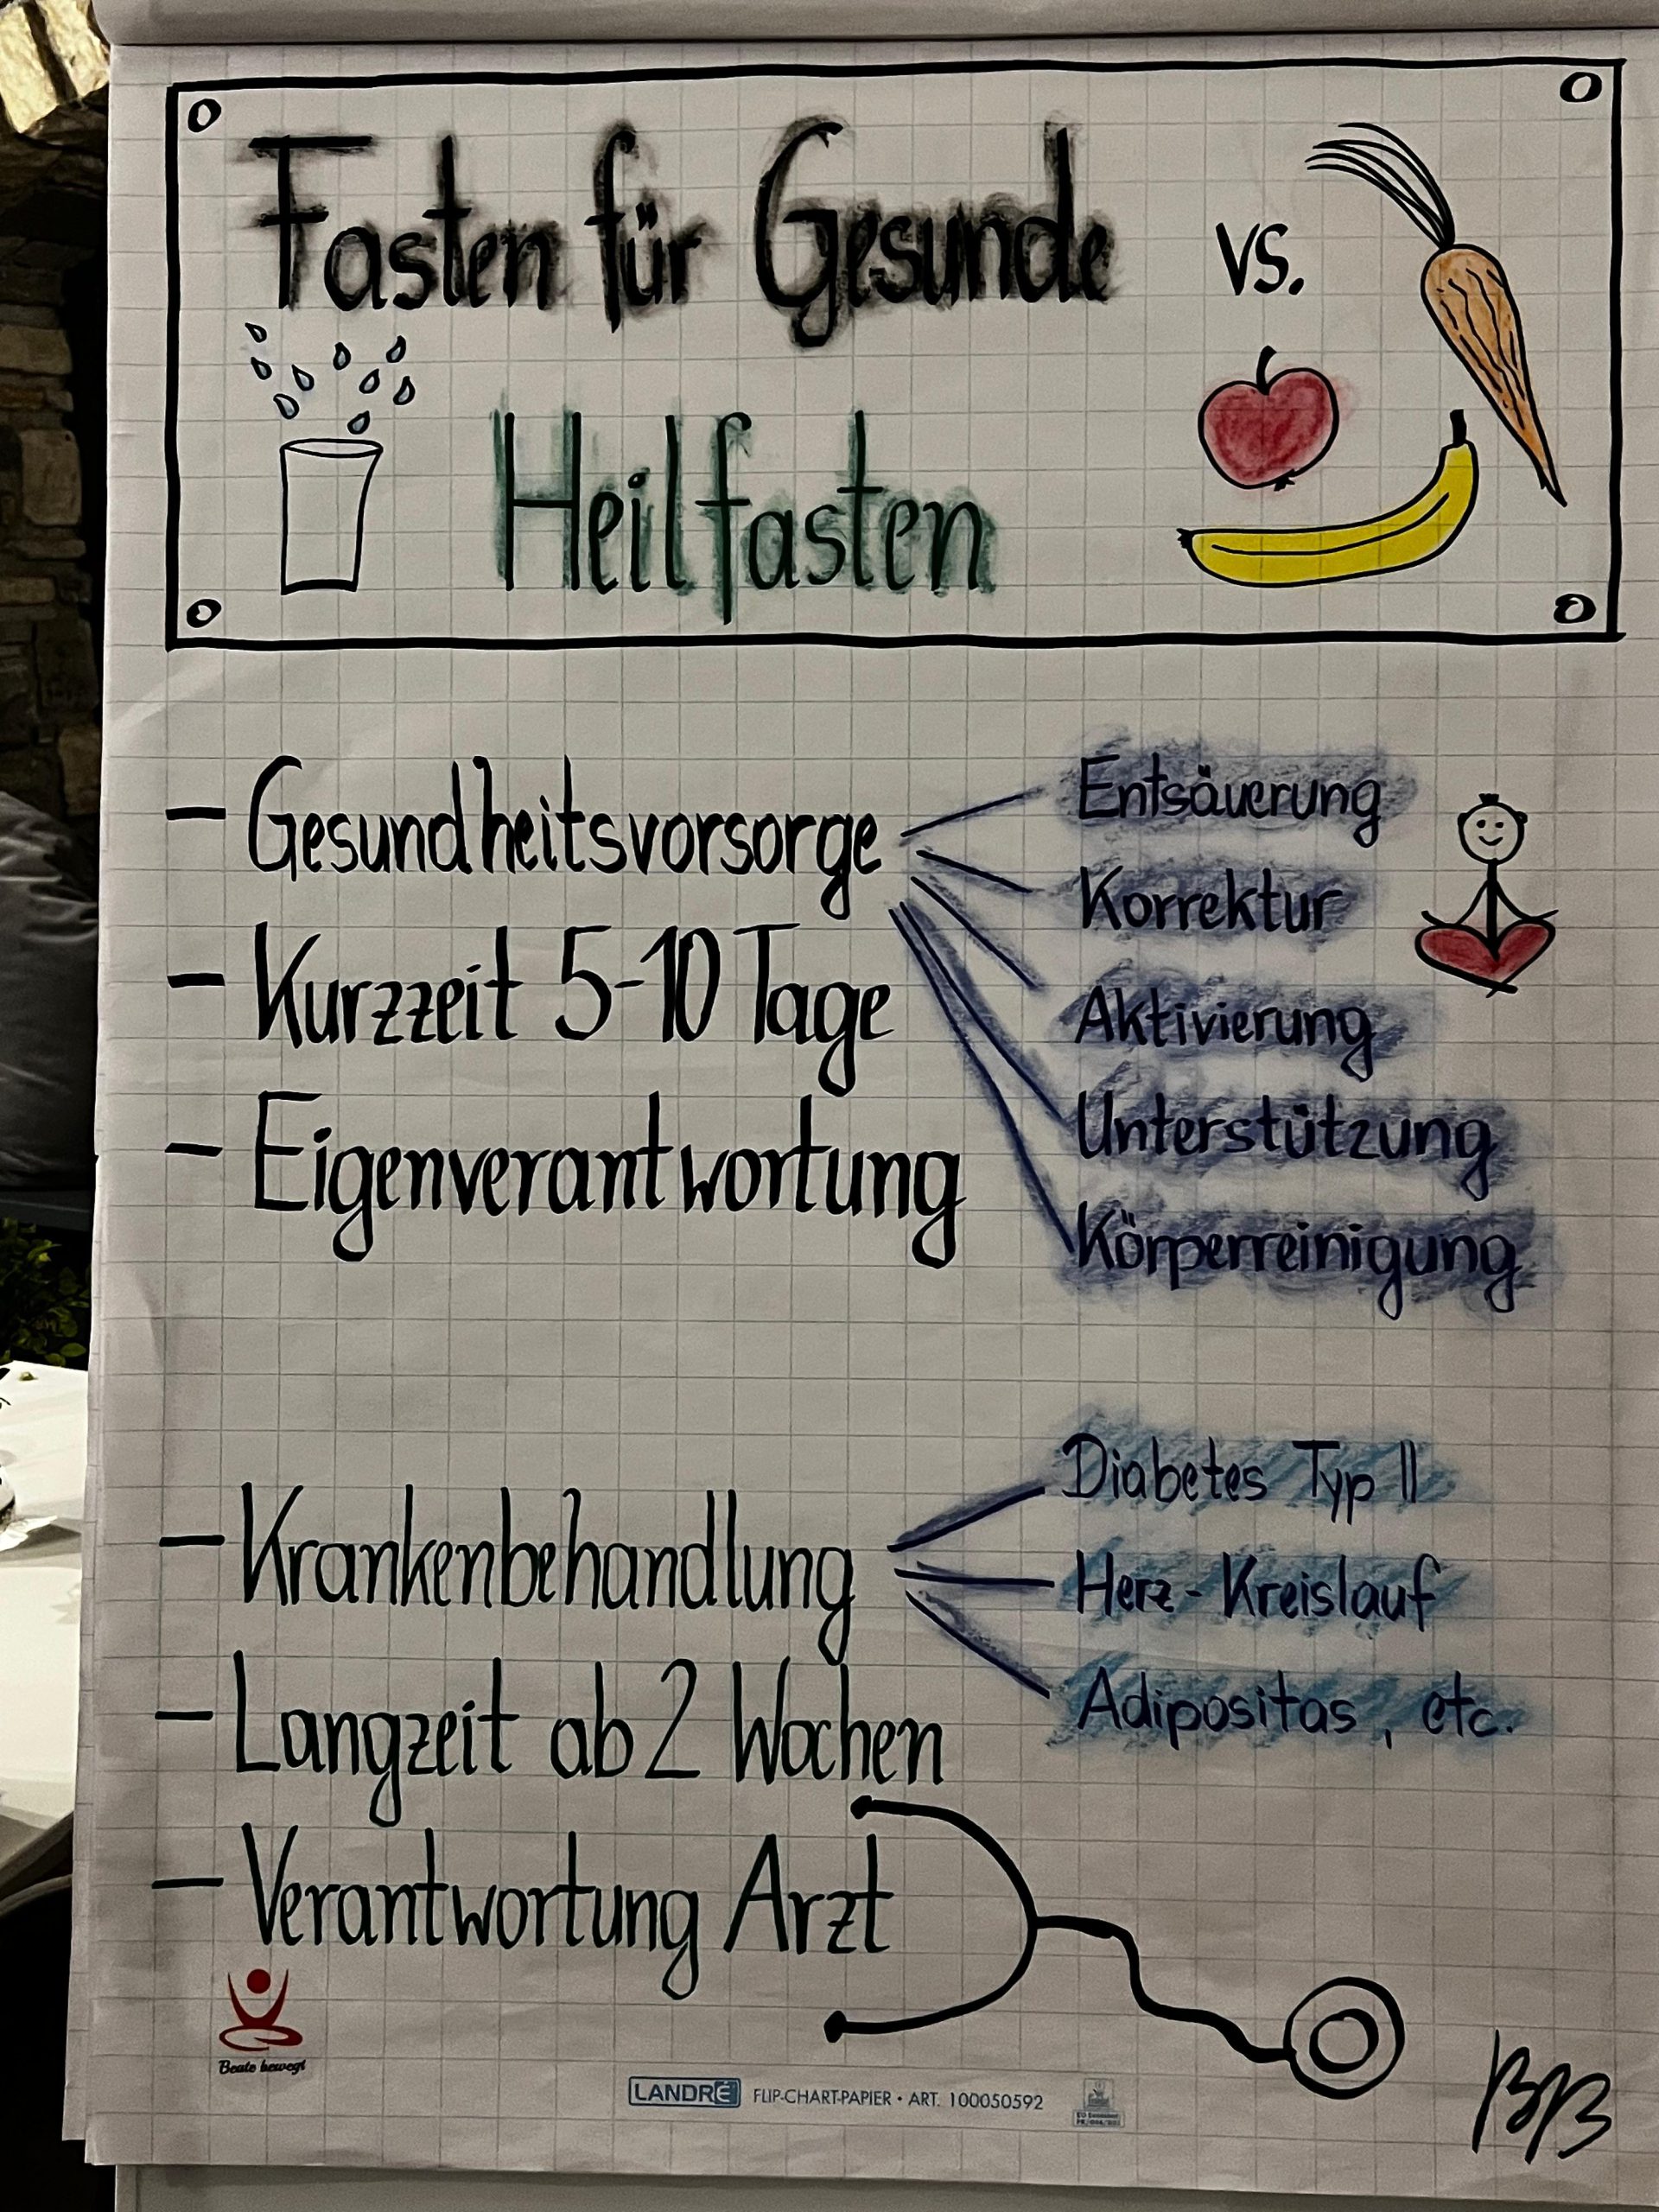 Fasten für Gesunde vs.
Heilfasten
– Gesundheitsvorsorge
– Kurzzeit 5-10 Tage
– Eigenverantwortung
Entsäuerung
Korrektur
Aktivierung
Unterstützung
Körperreinigung
– Krankenbehandlung
– Langzeit ab 2 Wochen
– Verantwortung Arzt
Diabetes Typ II
Herz-Kreislauf
Adipositas, etc.
Beate bewegt
LANDRÉ FLIP-CHART-PAPIER • ART. 100050592
BB